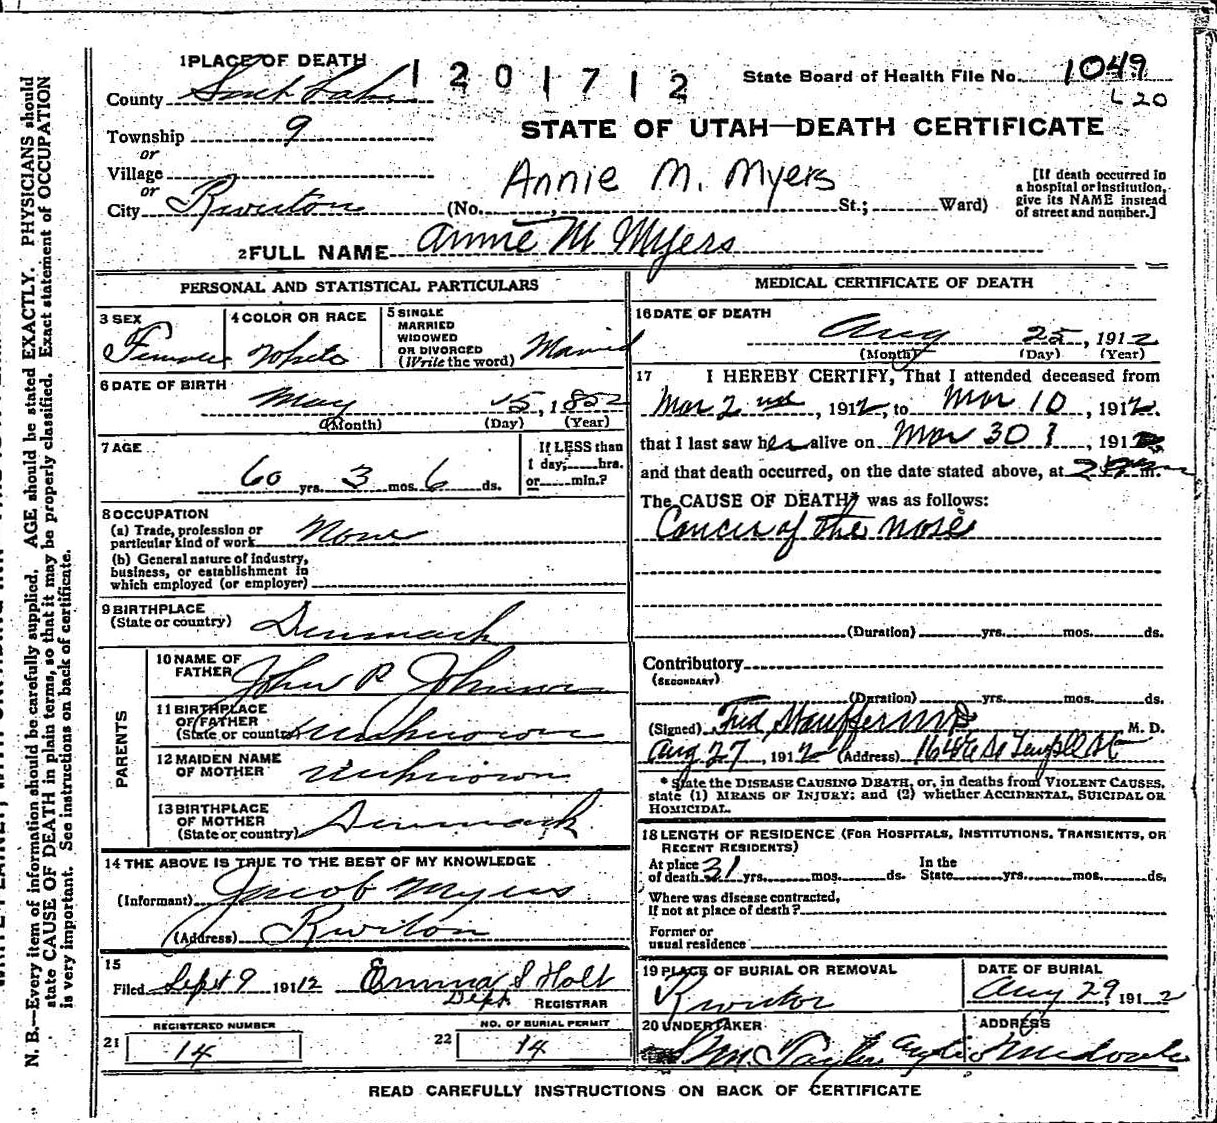 1 PLACE OF DEATH
1201712
State Board of Health File No. 1049
L20
County Salt Lake
Township 9
or
STATE OF UTAH—DEATH CERTIFICATE
Village
or
Annie M. Myers
City Riverton (No. , St.; Ward)
[If death occurred in
a hospital or institution,
give its NAME instead
of street and number.]
2 FULL NAME Annie M Myers
PERSONAL AND STATISTICAL PARTICULARS
3 SEX
Female
4 COLOR OR RACE
White
5 SINGLE
MARRIED
WIDOWED
OR DIVORCED
(Write the word) Married
6 DATE OF BIRTH
May 15, 1852
(Month) (Day) (Year)
7 AGE
60 yrs. 3 mos. 6 ds.
If LESS than
1 day, hrs.
or min.?
8 OCCUPATION
(a) Trade, profession or
particular kind of work None
(b) General nature of industry,
business, or establishment in
which employed (or employer)
9 BIRTHPLACE
(State or country) Denmark
PARENTS
10 NAME OF
FATHER John P Johnson
11 BIRTHPLACE
OF FATHER
(State or country) Unknown
12 MAIDEN NAME
OF MOTHER Unknown
13 BIRTHPLACE
OF MOTHER
(State or country) Denmark
14 THE ABOVE IS TRUE TO THE BEST OF MY KNOWLEDGE
(Informant) Jacob Myers
(Address) Riverton
15
Filed Sept 9 1912 Emma S Holt
Dept REGISTRAR
REGISTERED NUMBER
21 14
NO. OF BURIAL PERMIT
22 14
MEDICAL CERTIFICATE OF DEATH
16 DATE OF DEATH
Aug 25, 1912
(Month) (Day) (Year)
17 I HEREBY CERTIFY, That I attended deceased from
Mar 2nd, 1912, to Mar 10, 1912.
that I last saw her alive on Mar 30, 191
and that death occurred, on the date stated above, at m.
The CAUSE OF DEATH* was as follows:
Cancer of the nose
(Duration) yrs. mos. ds.
Contributory
(SECONDARY)
(Duration) yrs. mos. ds.
(Signed) Fred Stauffer MD M. D.
Aug 27, 1912 (Address) 164 E So Temple St
* State the DISEASE CAUSING DEATH, or, in deaths from VIOLENT CAUSES,
state (1) MEANS OF INJURY; and (2) whether ACCIDENTAL, SUICIDAL OR
HOMICIDAL.
18 LENGTH OF RESIDENCE (FOR HOSPITALS, INSTITUTIONS, TRANSIENTS, OR
RECENT RESIDENTS)
At place
of death 31 yrs. mos. ds.
In the
State yrs. mos. ds.
Where was disease contracted,
If not at place of death?
Former or
usual residence
19 PLACE OF BURIAL OR REMOVAL
Riverton
DATE OF BURIAL
Aug 29, 1912
20 UNDERTAKER
ADDRESS
READ CAREFULLY INSTRUCTIONS ON BACK OF CERTIFICATE
N. B.—Every item of information should be carefully supplied. AGE should be stated EXACTLY. PHYSICIANS should
state CAUSE OF DEATH in plain terms, so that it may be properly classified. Exact statement of OCCUPATION
is very important. See instructions on back of certificate.